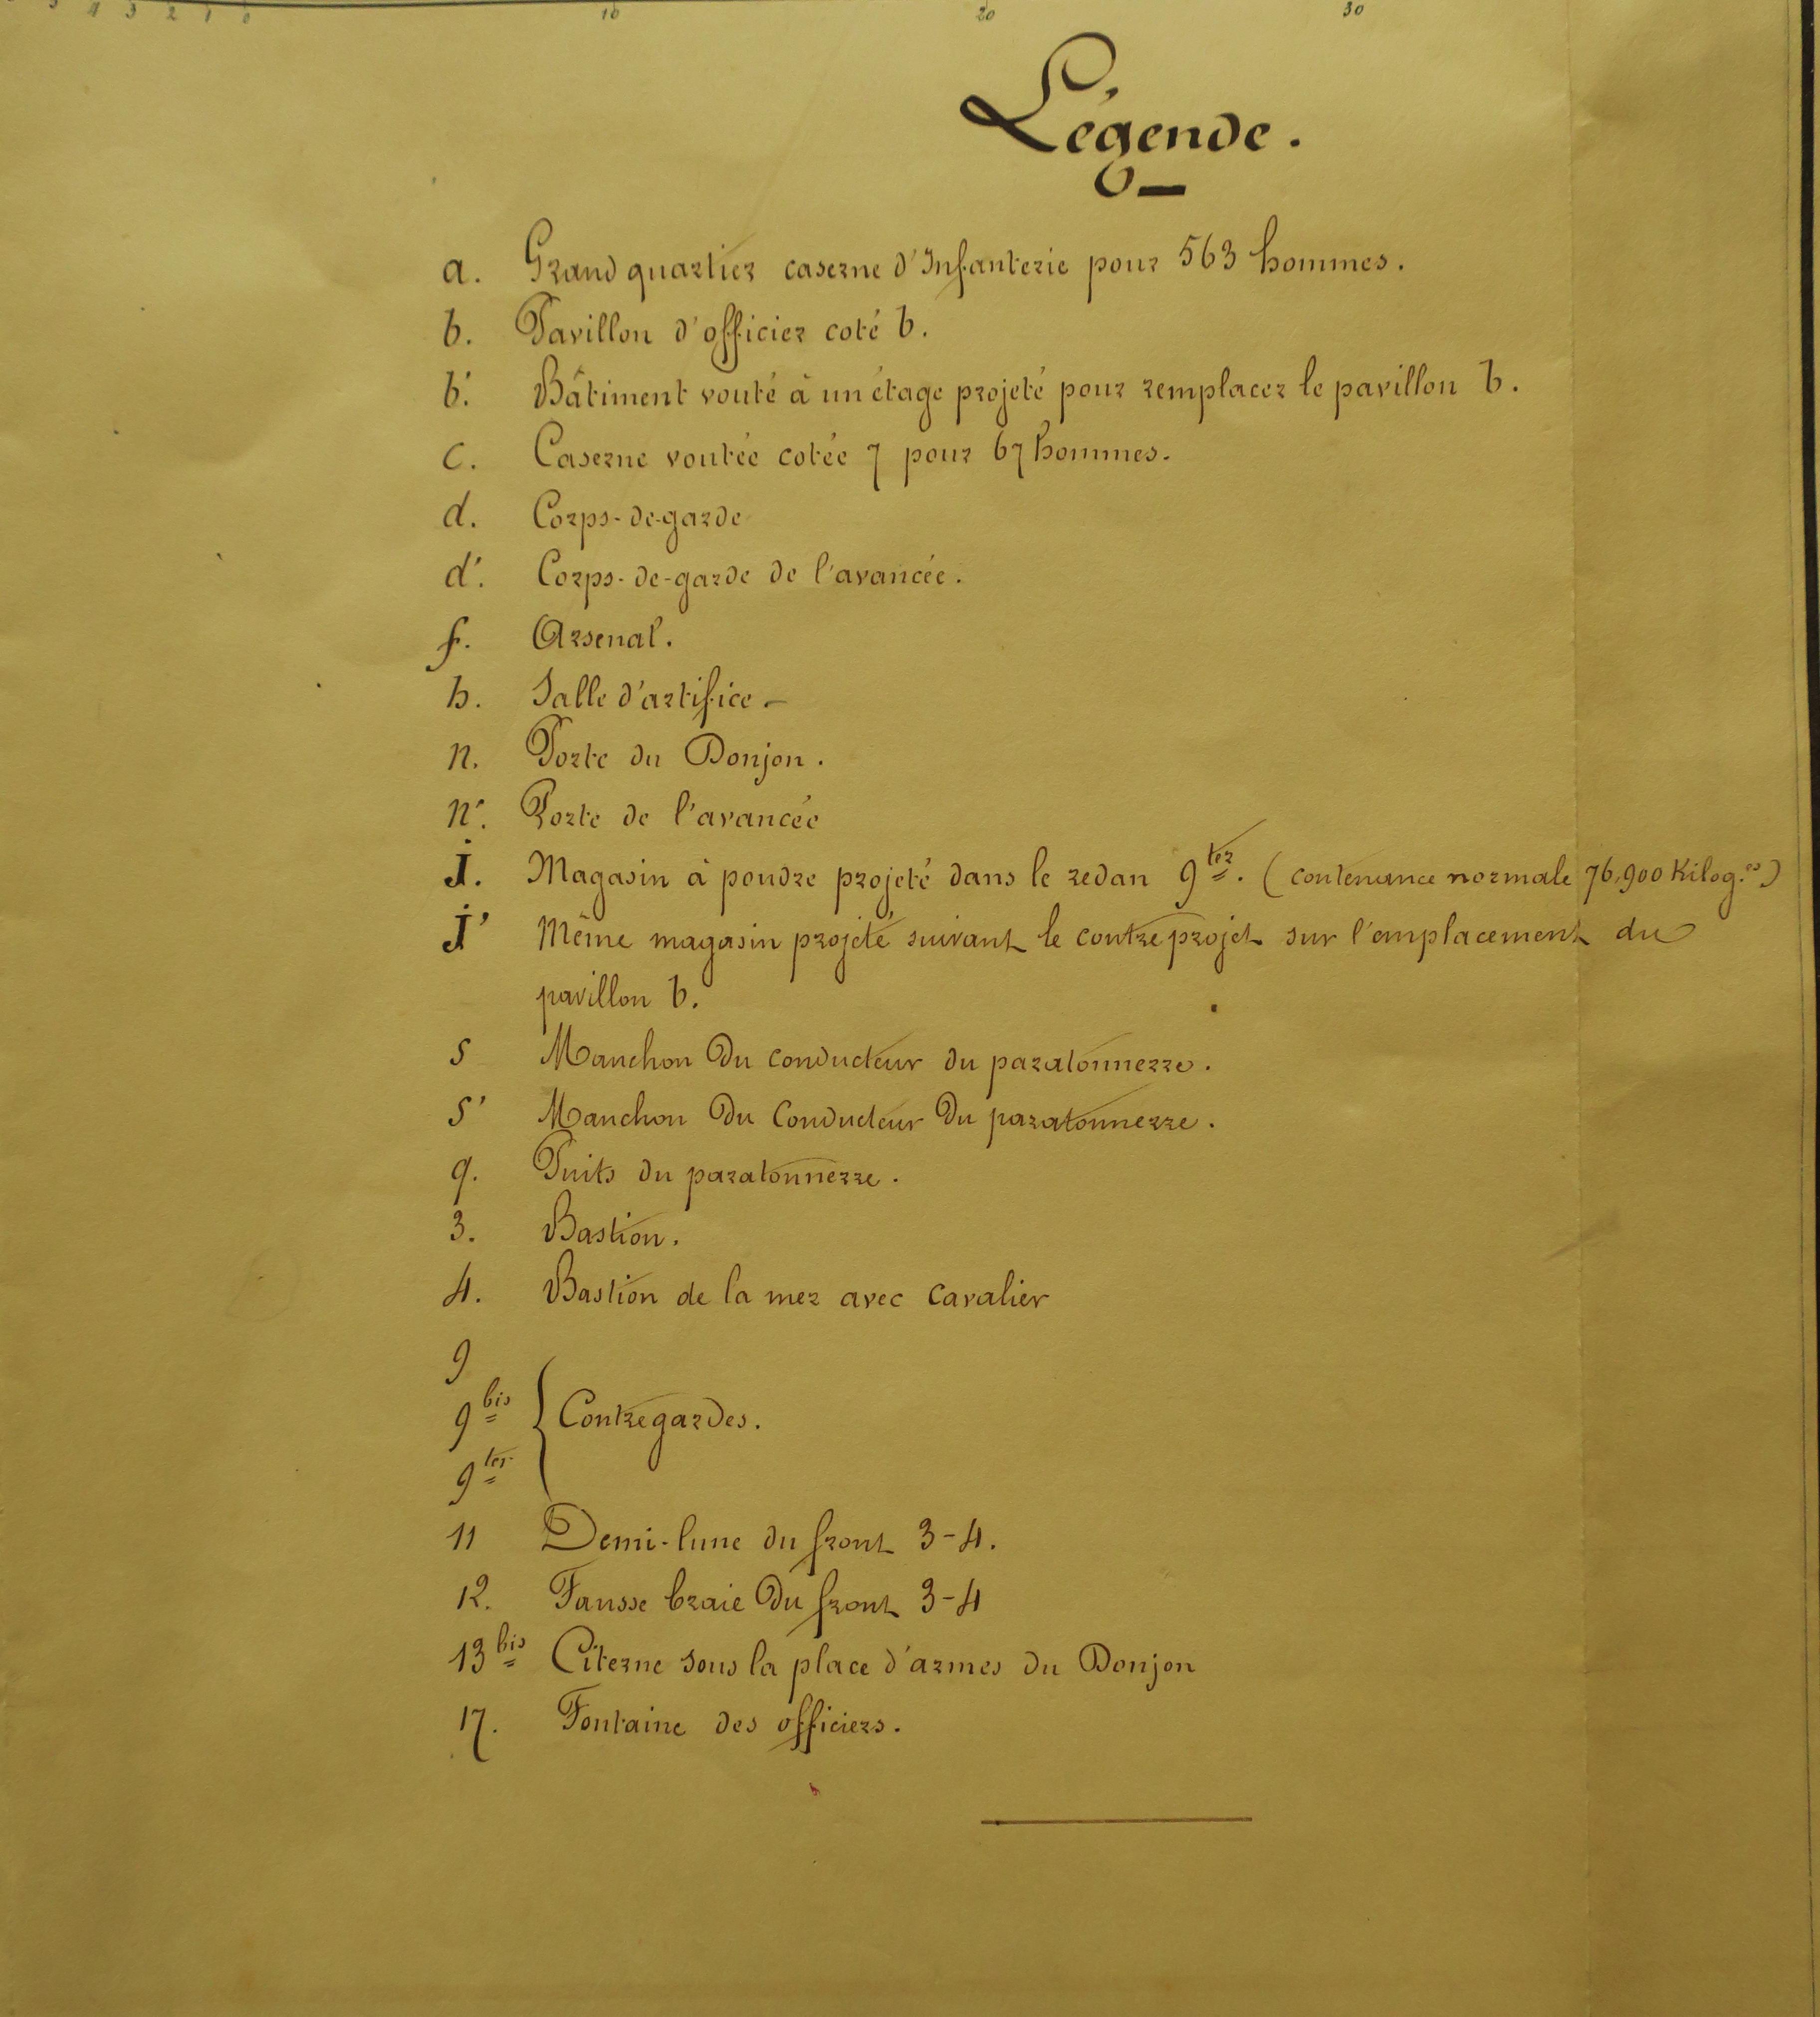 5 4 3 2 1 0 10 20 30
Légende.
a. Grand quartier caserne d'Infanterie pour 563 hommes.
b. Pavillon d'officier coté b.
b'. Bâtiment vouté à un étage projeté pour remplacer le pavillon b.
c. Caserne voutée cotée 7 pour 67 hommes.
d. Corps-de-garde
d'. Corps-de-garde de l'avancée.
f. Arsenal.
h. Salle d'artifice.-
n. Porte du Donjon.
n'. Porte de l'avancée
j. Magasin à poudre projeté dans le redan 9ter. (contenance normale 76,900 Kilog.es)
j' Même magasin projeté suivant le contreprojet sur l'emplacement du
pavillon b.
s Manchon du conducteur du paratonnerre.
s' Manchon du Conducteur du paratonnerre.
q. Puits du paratonnerre.
3. Bastion.
4. Bastion de la mer avec cavalier
9
9bis { Contregardes.
9ter
11 Demi-lune du front 3-4.
12. Fausse braie du front 3-4
13bis Citerne sous la place d'armes du Donjon
17. Fontaine des officiers.